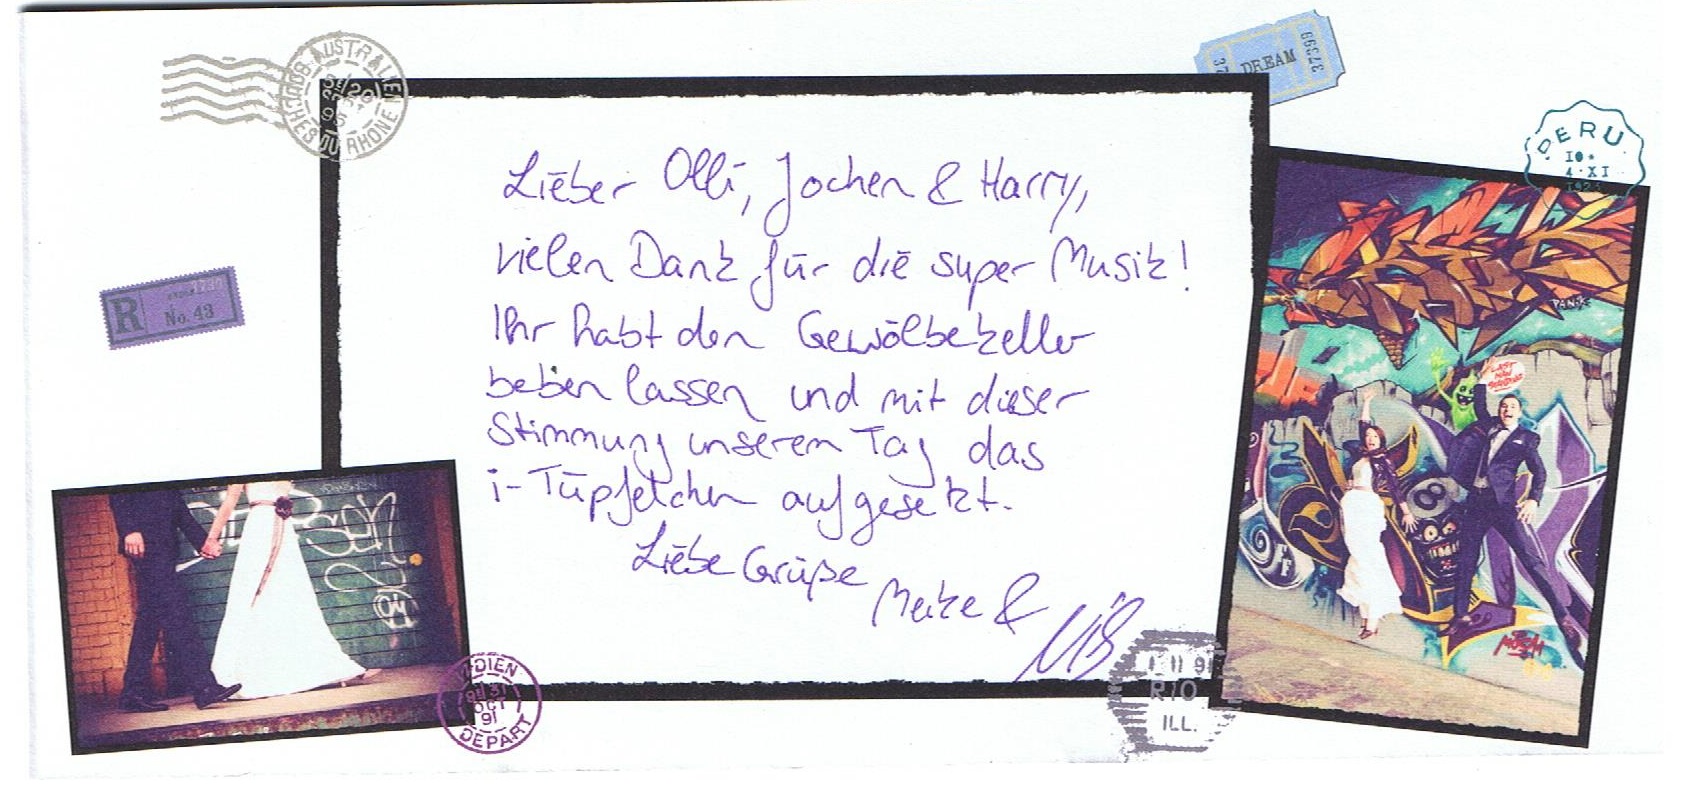 AUSTRALIEN
BOUCHES DU RHONE
DREAM
37399
PERU
10*
4·XI
R
No. 43
Lieber Olli, Jochen & Harry,
vielen Dank für die super Musik!
Ihr habt den Gewölbekeller
beben lassen und mit dieser
Stimmung unserem Tag das
i-Tüpfelchen aufgesetzt.
Liebe Grüße
Meike &
LAST
MAN
STANDING
8
INDIEN
31
OCT
91
DEPART
RIO
ILL.